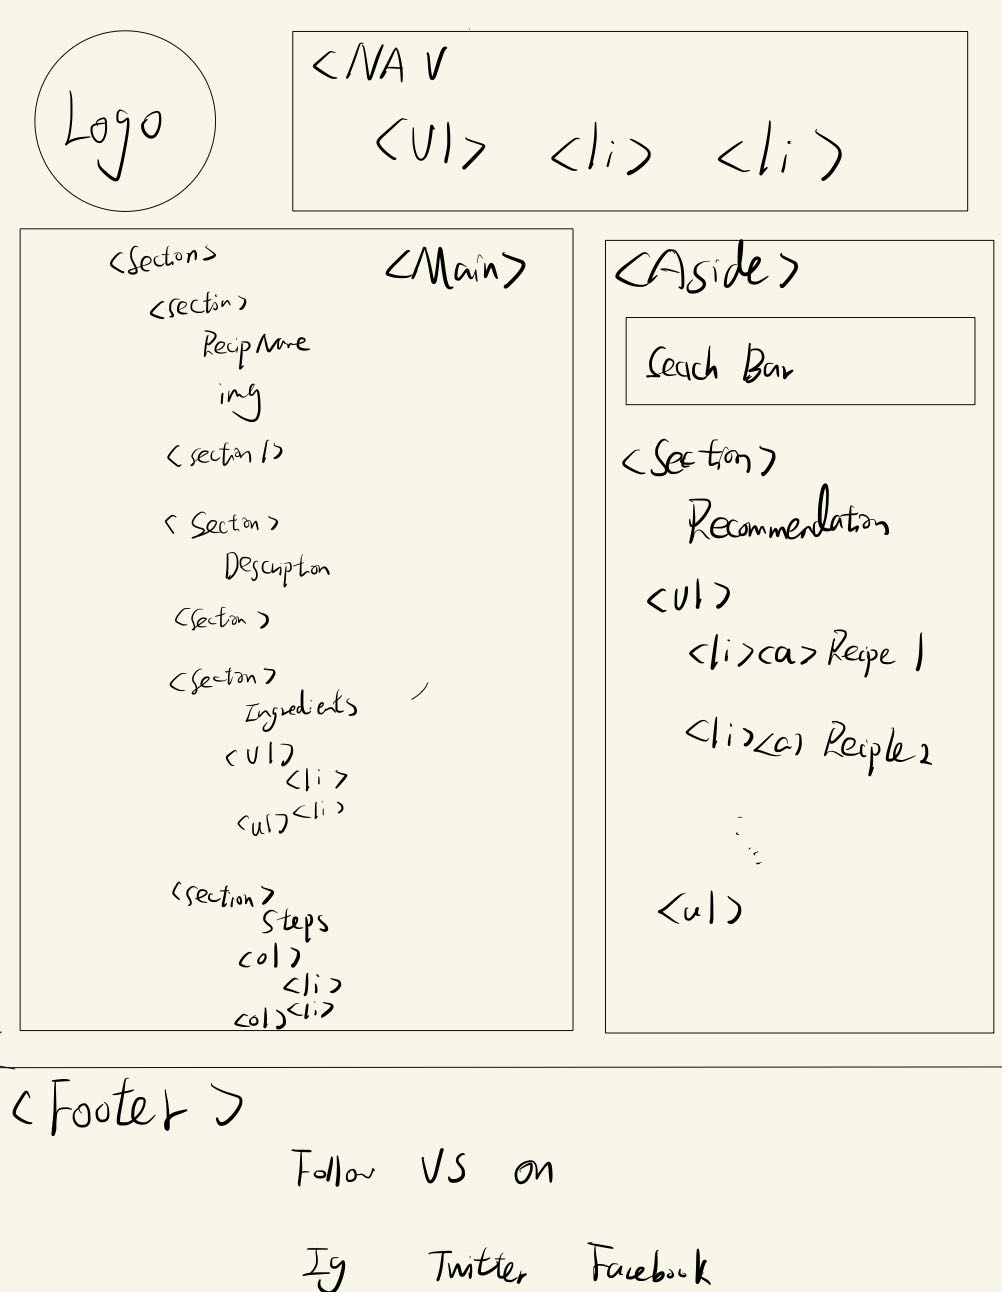 Logo
<NAV
<Ul> <li> <li>
<Section>
<Main>
<section>
Recip Name
img
<section/>
<Section>
Description
<section>
<section>
Ingredients
<ul>
<li>
<ul> <li>
<section>
Steps
<ol>
<li>
<ol> <li>
<Aside>
Seach Bar
<Section>
Recommendation
<ul>
<li><a> Recipe 1
<li><a> Reciple 2
<ul>
<Footer>
Follow US on
Ig Twitter Facebook